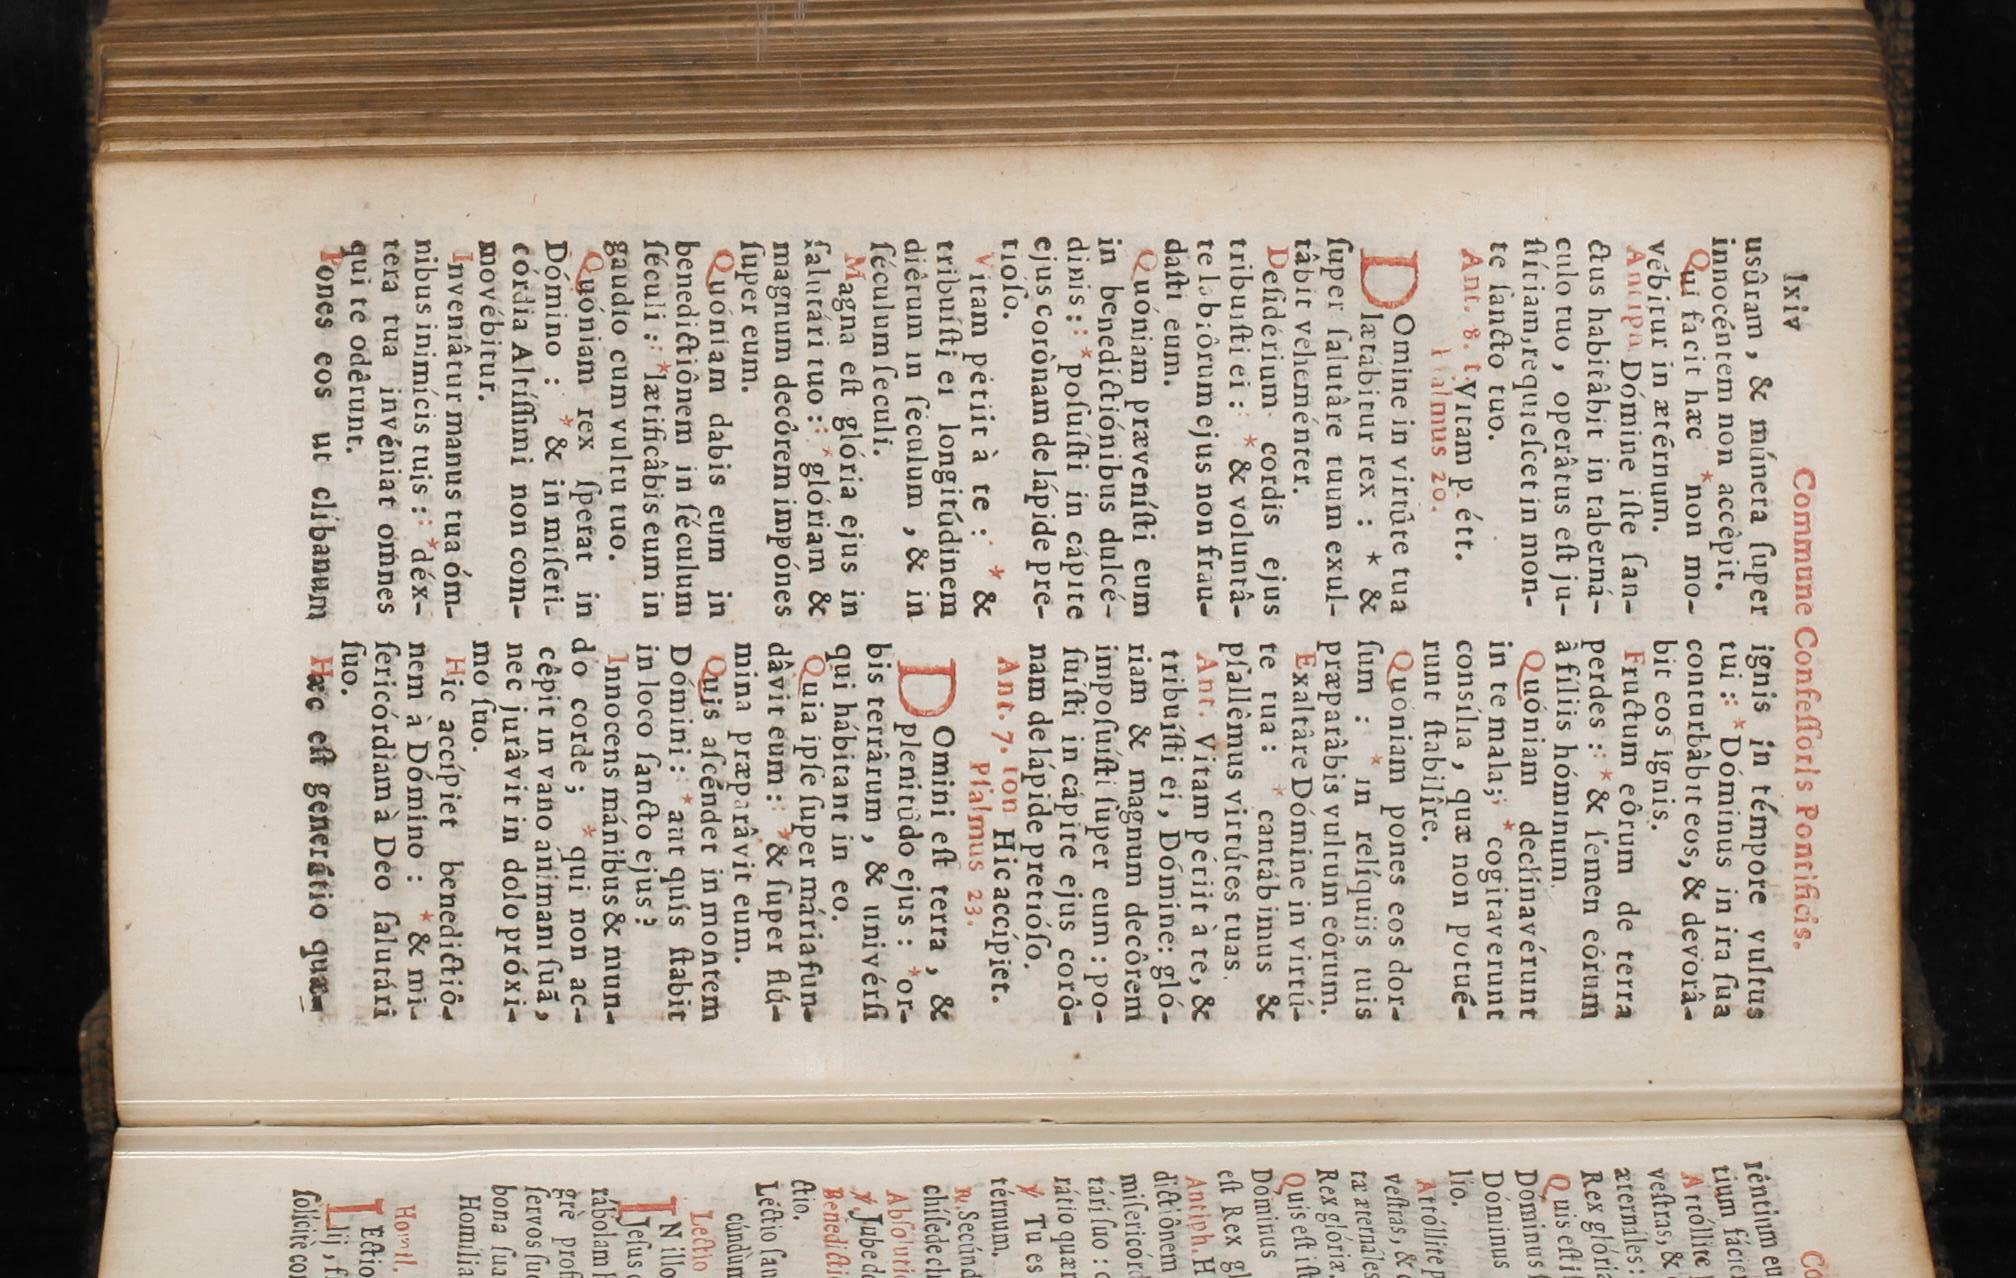 lxiv
Commune Confeſſoris Pontificis.
usûram, & múnera ſuper
innocéntem non accêpit.
Qui facit hæc * non mo-
vébitur in ætérnum.
Antipn. Dómine iſte ſan-
ctus habitâbit in taberná-
culo tuo, operâtus eſt ju-
ſtítiam, requieſcet in mon-
te ſancto tuo.
Ant. 8. t. Vitam p étt.
Pſalmus 20.
DOmine in virtûte tua
lætábitur rex : * &
ſuper ſalutâre tuum exul-
tâbit veheménter.
Deſidérium cordis ejus
tribuiſti ei : * & voluntâ-
te labiôrum ejus non frau-
daſti eum.
Quóniam præveníſti eum
in benedictiónibus dulcé-
dinis : * poſuíſti in cápite
ejus corônam de lápide pre-
tióſo.
Vitam pétiit à te : * &
tribuíſti ei longitúdinem
diêrum in ſéculum, & in
ſéculum ſeculi.
Magna eſt glória ejus in
ſalutári tuo : * glóriam &
magnum decôrem impónes
ſuper eum.
Quóniam dabis eum in
benedictiônem in ſéculum
ſéculi : * lætificâbis eum in
gaudio cum vultu tuo.
Quóniam rex ſperat in
Dómino : * & in miſeri-
córdia Altíſſimi non com-
movébitur.
Inveniâtur manus tua óm-
nibus inimícis tuis : * déx-
tera tua invéniat omnes
qui te odêrunt.
Pones eos ut clíbanum
ignis in témpore vultus
tui : * Dóminus in ira ſua
conturbâbit eos, & devorâ-
bit eos ignis.
Fructum eôrum de terra
perdes : * & ſemen eórum
à filiis hóminum.
Quóniam declinavérunt
in te mala; * cogitaverunt
consília, quæ non potué-
runt ſtabilîre.
Quóniam pones eos dor-
ſum : * in relíquiis tuis
præparâbis vultum eôrum.
Exaltâre Dómine in virtú-
te tua : * cantábimus &
pſallêmus virtútes tuas.
Ant. Vitam pétiit à te, &
tribuíſti ei, Dómine: gló-
riam & magnum decôrem
impoſuíſti ſuper eum : po-
ſuíſti in cápite ejus corô-
nam de lápide pretióſo.
Ant. 7. ton Hic accípiet.
Pſalmus 23.
DOmini eſt terra, &
plenitûdo ejus : * or-
bis terrârum, & univérſi
qui hábitant in eo.
Quia ipſe ſuper mária fun-
dâvit eum : * & ſuper flú-
mina præparâvit eum.
Quis aſcéndet in montem
Dómini : * aut quis ſtabit
in loco ſancto ejus?
Innocens mánibus & mun-
do corde; * qui non ac-
cêpit in vano ánimam ſuā,
nec jurâvit in dolo próxi-
mo ſuo.
Hic accípiet benedictiô-
nem à Dómino : * & mi-
ſericórdiam à Deo ſalutári
ſuo.
Hæc eſt generátio quæ-
réntium eu
tium fácie
Attóllite
veſtras, &
æternáles :
Rex glória
Quis eſt i
Dóminus f
Dóminus
lio.
Attóllite p
veſtras, &
tæ æternáles
Rex glóriæ.
Quis eſt iſt
Dóminus
eſt Rex gl
Antiph. H
dictiônem
miſericórd
tári ſuo :
rátio quær
térnum.
℣ Tu es
℟. Secúnd
chíſedech
Abſolutio
℣. Jube do
Benedictio
ctio.
Léctio ſan
cúndùm
Lectio
IN illo
Jeſus
rábolam
grè prof
ſervos ſuo
bona ſua
Homília
Homil.
LEctio
lij, f
ſolícitè co